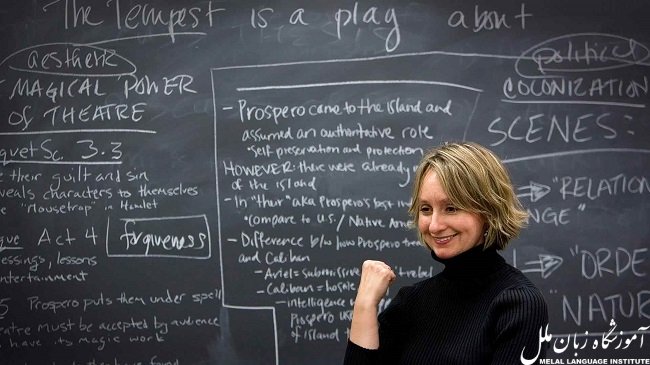 The Tempest is a play about
aesthetic
MAGICAL POWER
OF THEATRE
quet Sc. 3.3
their guilt and sin
veals characters to themselves
"Mousetrap" in Hamlet
Act 4
forgiveness
essings, lessons
entertainment
Prospero puts them under spell
must be accepted by audience
have its magic work
- Prospero came to the island and
assumed an authoritative role
*self preservation and protection
HOWEVER: there were already
of the island
- In "their" aka Prospero's best in
*compare to U.S./Native Amer
- Difference b/w how Prospero
and Caliban
- Ariel = submissive rebel
- Caliban =
- intelligence
Prospero
of island
political
COLONIZATION
SCENES:
"RELATION
NGE"
"ORDE
"NATUR
آموزشگاه زبان ملل
MELAL LANGUAGE INSTITUTE